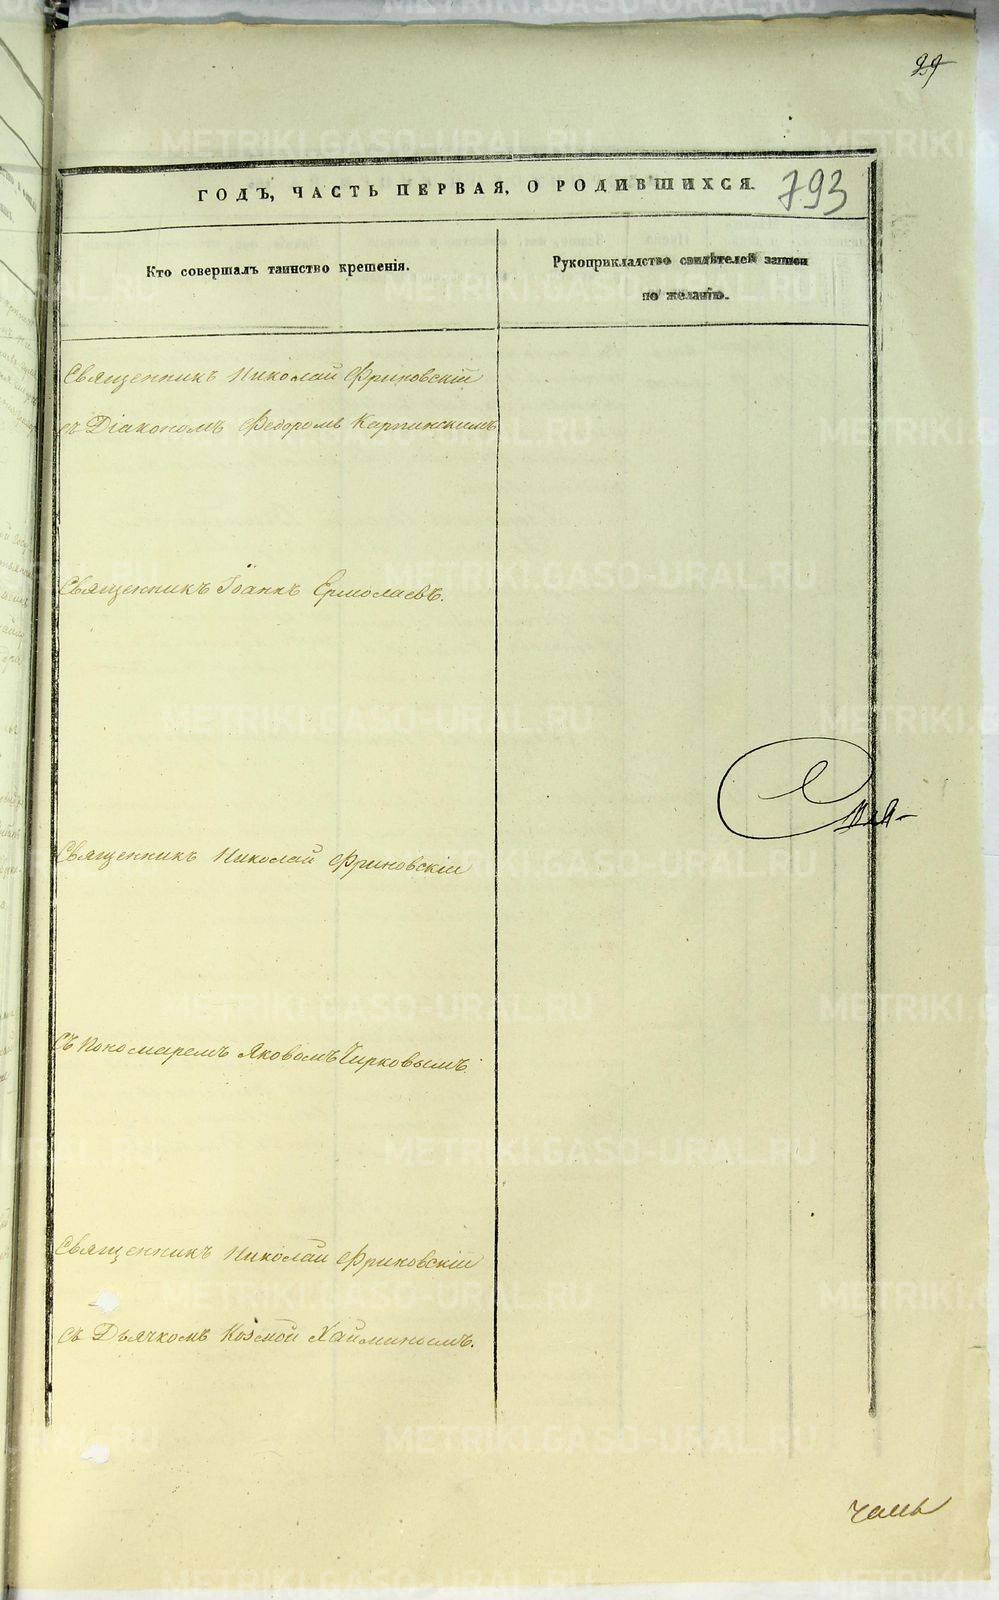 29
793
ГОДЪ, ЧАСТЬ ПЕРВАЯ, О РОДИВШИХСЯ.
Кто совершалъ таинство крещенія.
Рукоприкладство свидѣтелей записи
по желанію.
Священникъ Николай Фриновскій
съ Діакономъ Федоромъ Карпинскимъ
Священникъ Іоаннъ Ермолаевъ.
Священникъ Николай Фриновскій
Съ Пономаремъ Яковомъ Чирковымъ.
Священникъ Николай Фриновскій
съ Дьячкомъ Козмой Хайминымъ.
METRIKI.GASO-URAL.RU